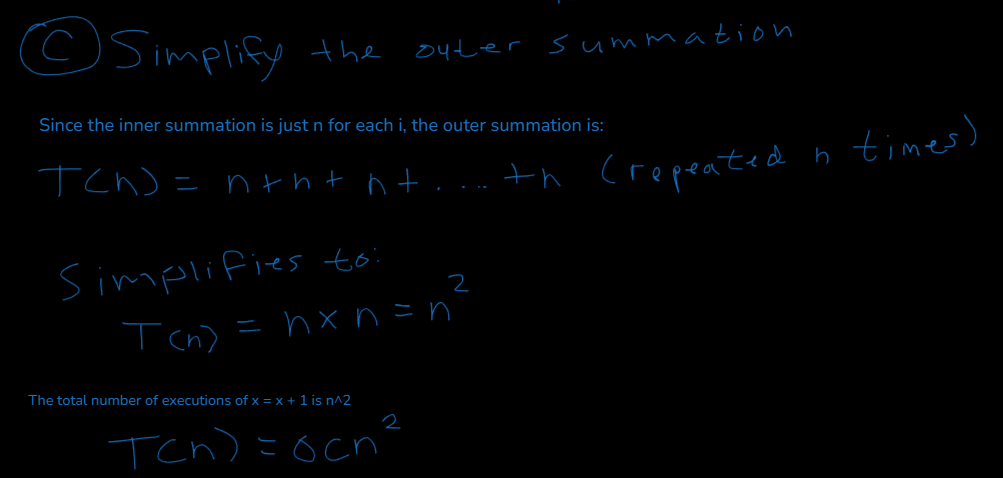 C Simplify the outer summation
Since the inner summation is just n for each i, the outer summation is:
T(n) = n+n+n+....+n (repeated n times)
Simplifies to:
T(n) = n×n=n²
The total number of executions of x = x + 1 is n^2
T(n)=O(n²